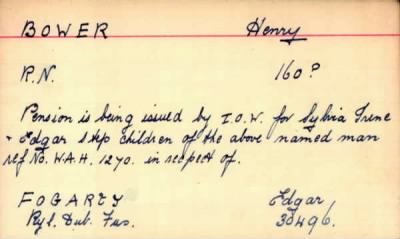 BOWER Henry
R.N. 160?
Pension is being issued by I.O.W. for Sylvia Irene
+ Edgar step children of the above named man
ref No. W.A.H. 1270. in respect of.
FOGARTY Edgar
Ryl. Dub. Fus. 30496.